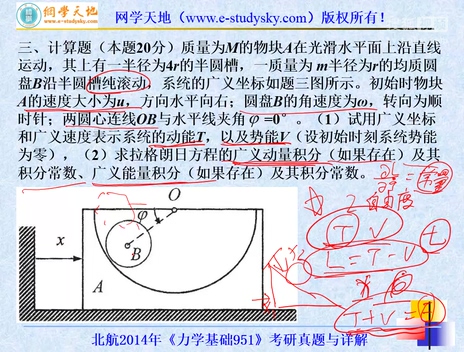 網学天地
www.e-studysky.com
网学天地（www.e-studysky.com）版权所有！
三、计算题（本题20分）质量为M的物块A在光滑水平面上沿直线
运动，其上有一半径为4r的半圆槽，一质量为 m半径为r的均质圆
盘B沿半圆槽纯滚动，系统的广义坐标如题三图所示。初始时物块
A的速度大小为u，方向水平向右；圆盘B的角速度为ω，转向为顺
时针；两圆心连线OB与水平线夹角φ=0°。（1）试用广义坐标
和广义速度表示系统的动能T，以及势能V（设初始时刻系统势能
为零），（2）求拉格朗日方程的广义动量积分（如果存在）及其
积分常数、广义能量积分（如果存在）及其积分常数。
2自由度
T V
L=T-V t
x
T+V=
O
φ
x
B
A
北航2014年《力学基础951》考研真题与详解